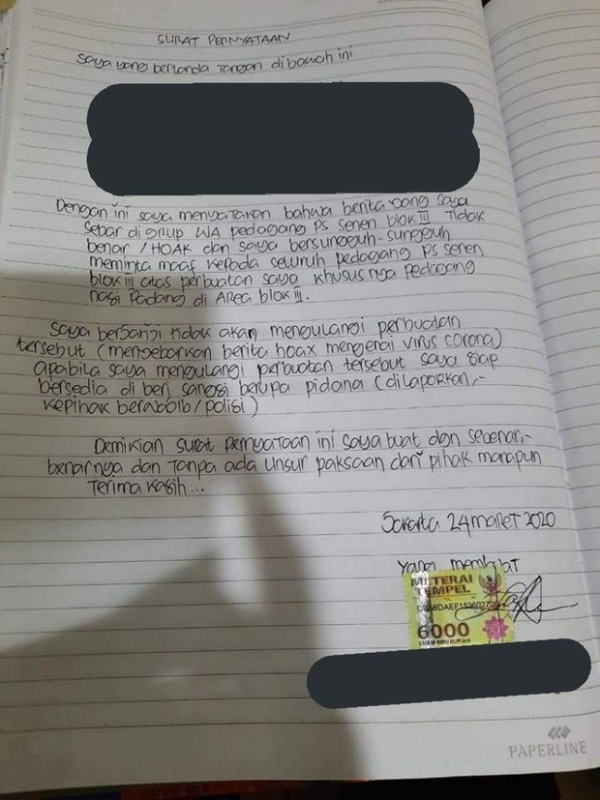 SURAT PERNYATAAN
Saya yang bertanda tangan dibawah ini
Dengan ini saya menyatakan bahwa berita yang saya
sebar di grup WA pedagang PS senen blok III Tidak
benar / HOAK dan saya bersungguh-sungguh
meminta maaf kepada seluruh pedagang PS senen
blok III atas perbuatan saya khususnya pedagang
nasi Padang di Area blok III.
Saya berjanji tidak akan mengulangi perbuatan
tersebut (menyebarkan berita hoax mengenai virus corona)
apabila saya mengulangi perbuatan tersebut saya siap
bersedia di beri sangsi berupa pidana (dilaporkan,-
kepihak berwajib/polisi)
Demikian surat pernyataan ini saya buat dgn sebenar,-
benarnya dan tanpa ada unsur paksaan dari pihak manapun
Terima kasih...
Jakarta 24 maret 2020
yang membuat
METERAI
TEMPEL
6000
ENAM RIBU RUPIAH
PAPERLINE